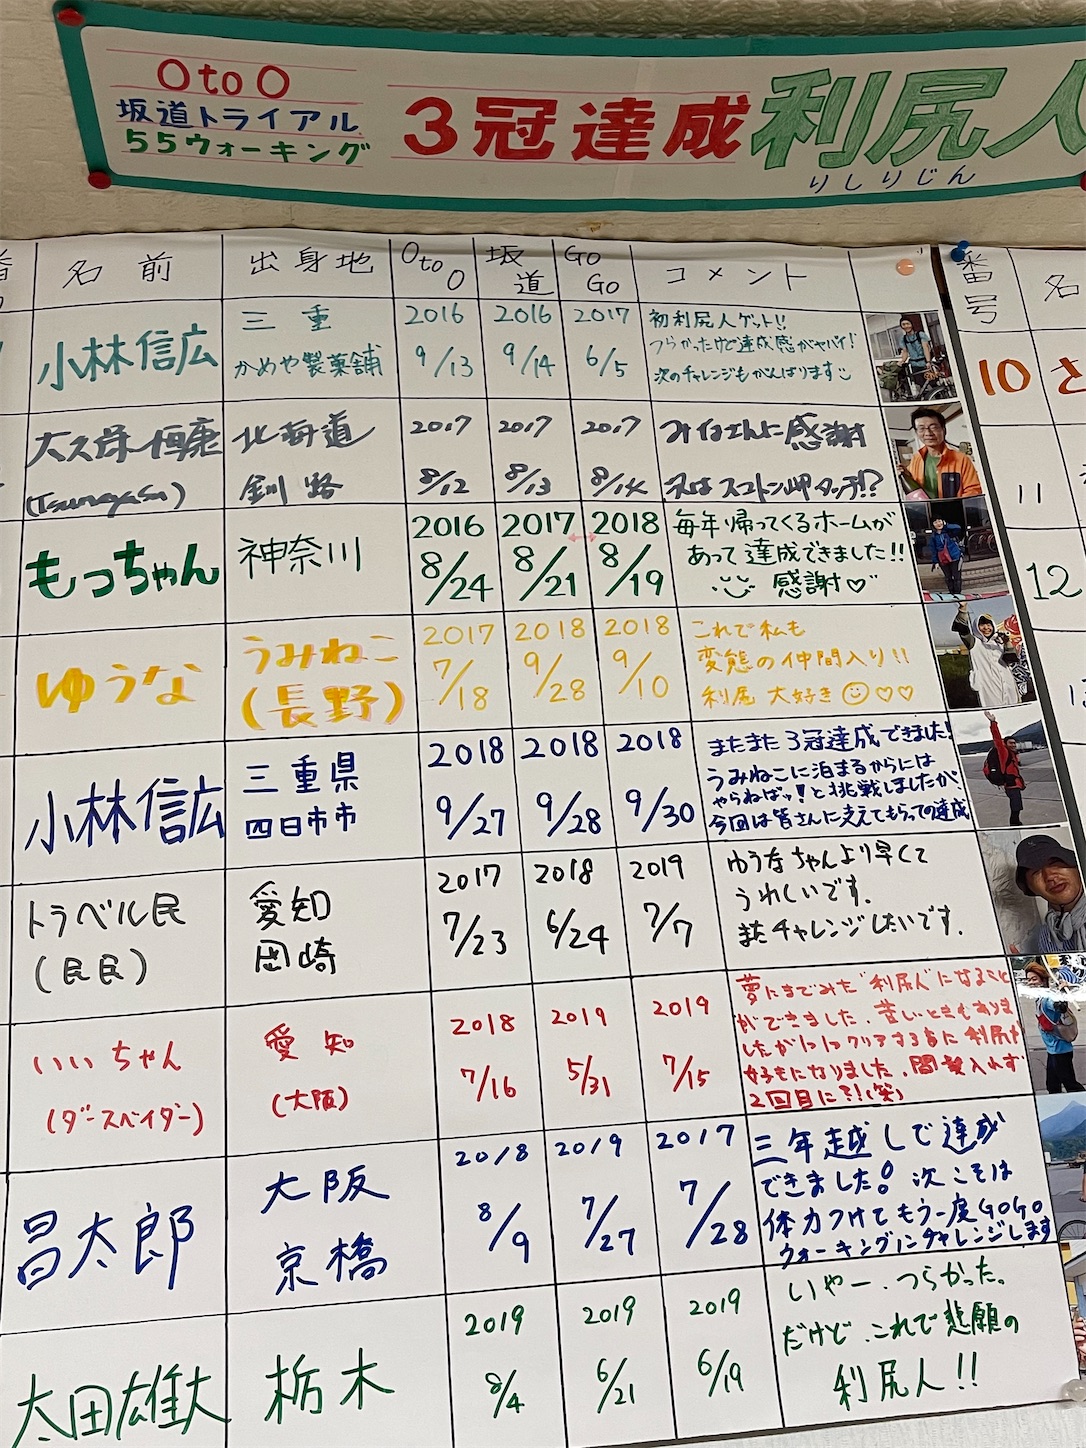 0 to 0
坂道トライアル
55ウォーキング
3冠達成 利尻人
りしりじん
名前 出身地 0to0 坂道 GoGo コメント
番号
小林信広
三重
かめや製薬舗
2016 9/13
2016 9/14
2017 6/5
初利尻人ゲット!!
つらかったけど達成感がヤバイ!
次のチャレンジもがんばります
大久保恒康
(Tsuneyasu)
北海道
釧路
2017 8/12
2017 8/13
2017 8/14
みなさんに感謝
次はスコトン岬タッチ!?
もっちゃん
神奈川
2016 8/24
2017 8/21
2018 8/19
毎年帰ってくるホームが
あって達成できました!!
感謝♡
ゆうな
うみねこ
(長野)
2017 7/18
2018 9/28
2018 9/10
これで私も
変態の仲間入り!!
利尻大好き♡♡
小林信広
三重県
四日市市
2018 9/27
2018 9/28
2018 9/30
またまた3冠達成できました!
うみねこに泊まるからには
やらねばッ!と挑戦しましたが、
今回は皆さんに支えてもらっての達成
トラベル民
(民民)
愛知
岡崎
2017 7/23
2018 6/24
2019 7/7
ゆうなちゃんより早くて
うれしいです。
またチャレンジしたいです。
いいちゃん
(ダースベイダー)
愛知
(大阪)
2018 7/16
2019 5/31
2019 7/15
夢にまでみた"利尻人"になること
ができました。苦しいときもありま
したが1つ1つクリアする毎に利尻が
好きになりました。間髪入れず
2回目に?!(笑)
昌太郎
大阪
京橋
2018 8/9
2019 7/27
2017 7/28
三年越しで達成
できました! 次こそは
体力つけてもう一度GOGO
ウォーキングにチャレンジします
太田雄大
栃木
2019 8/4
2019 6/21
2019 6/19
いやー、つらかった。
だけど、これで悲願の
利尻人!!
番号
名
10
さ
11
12